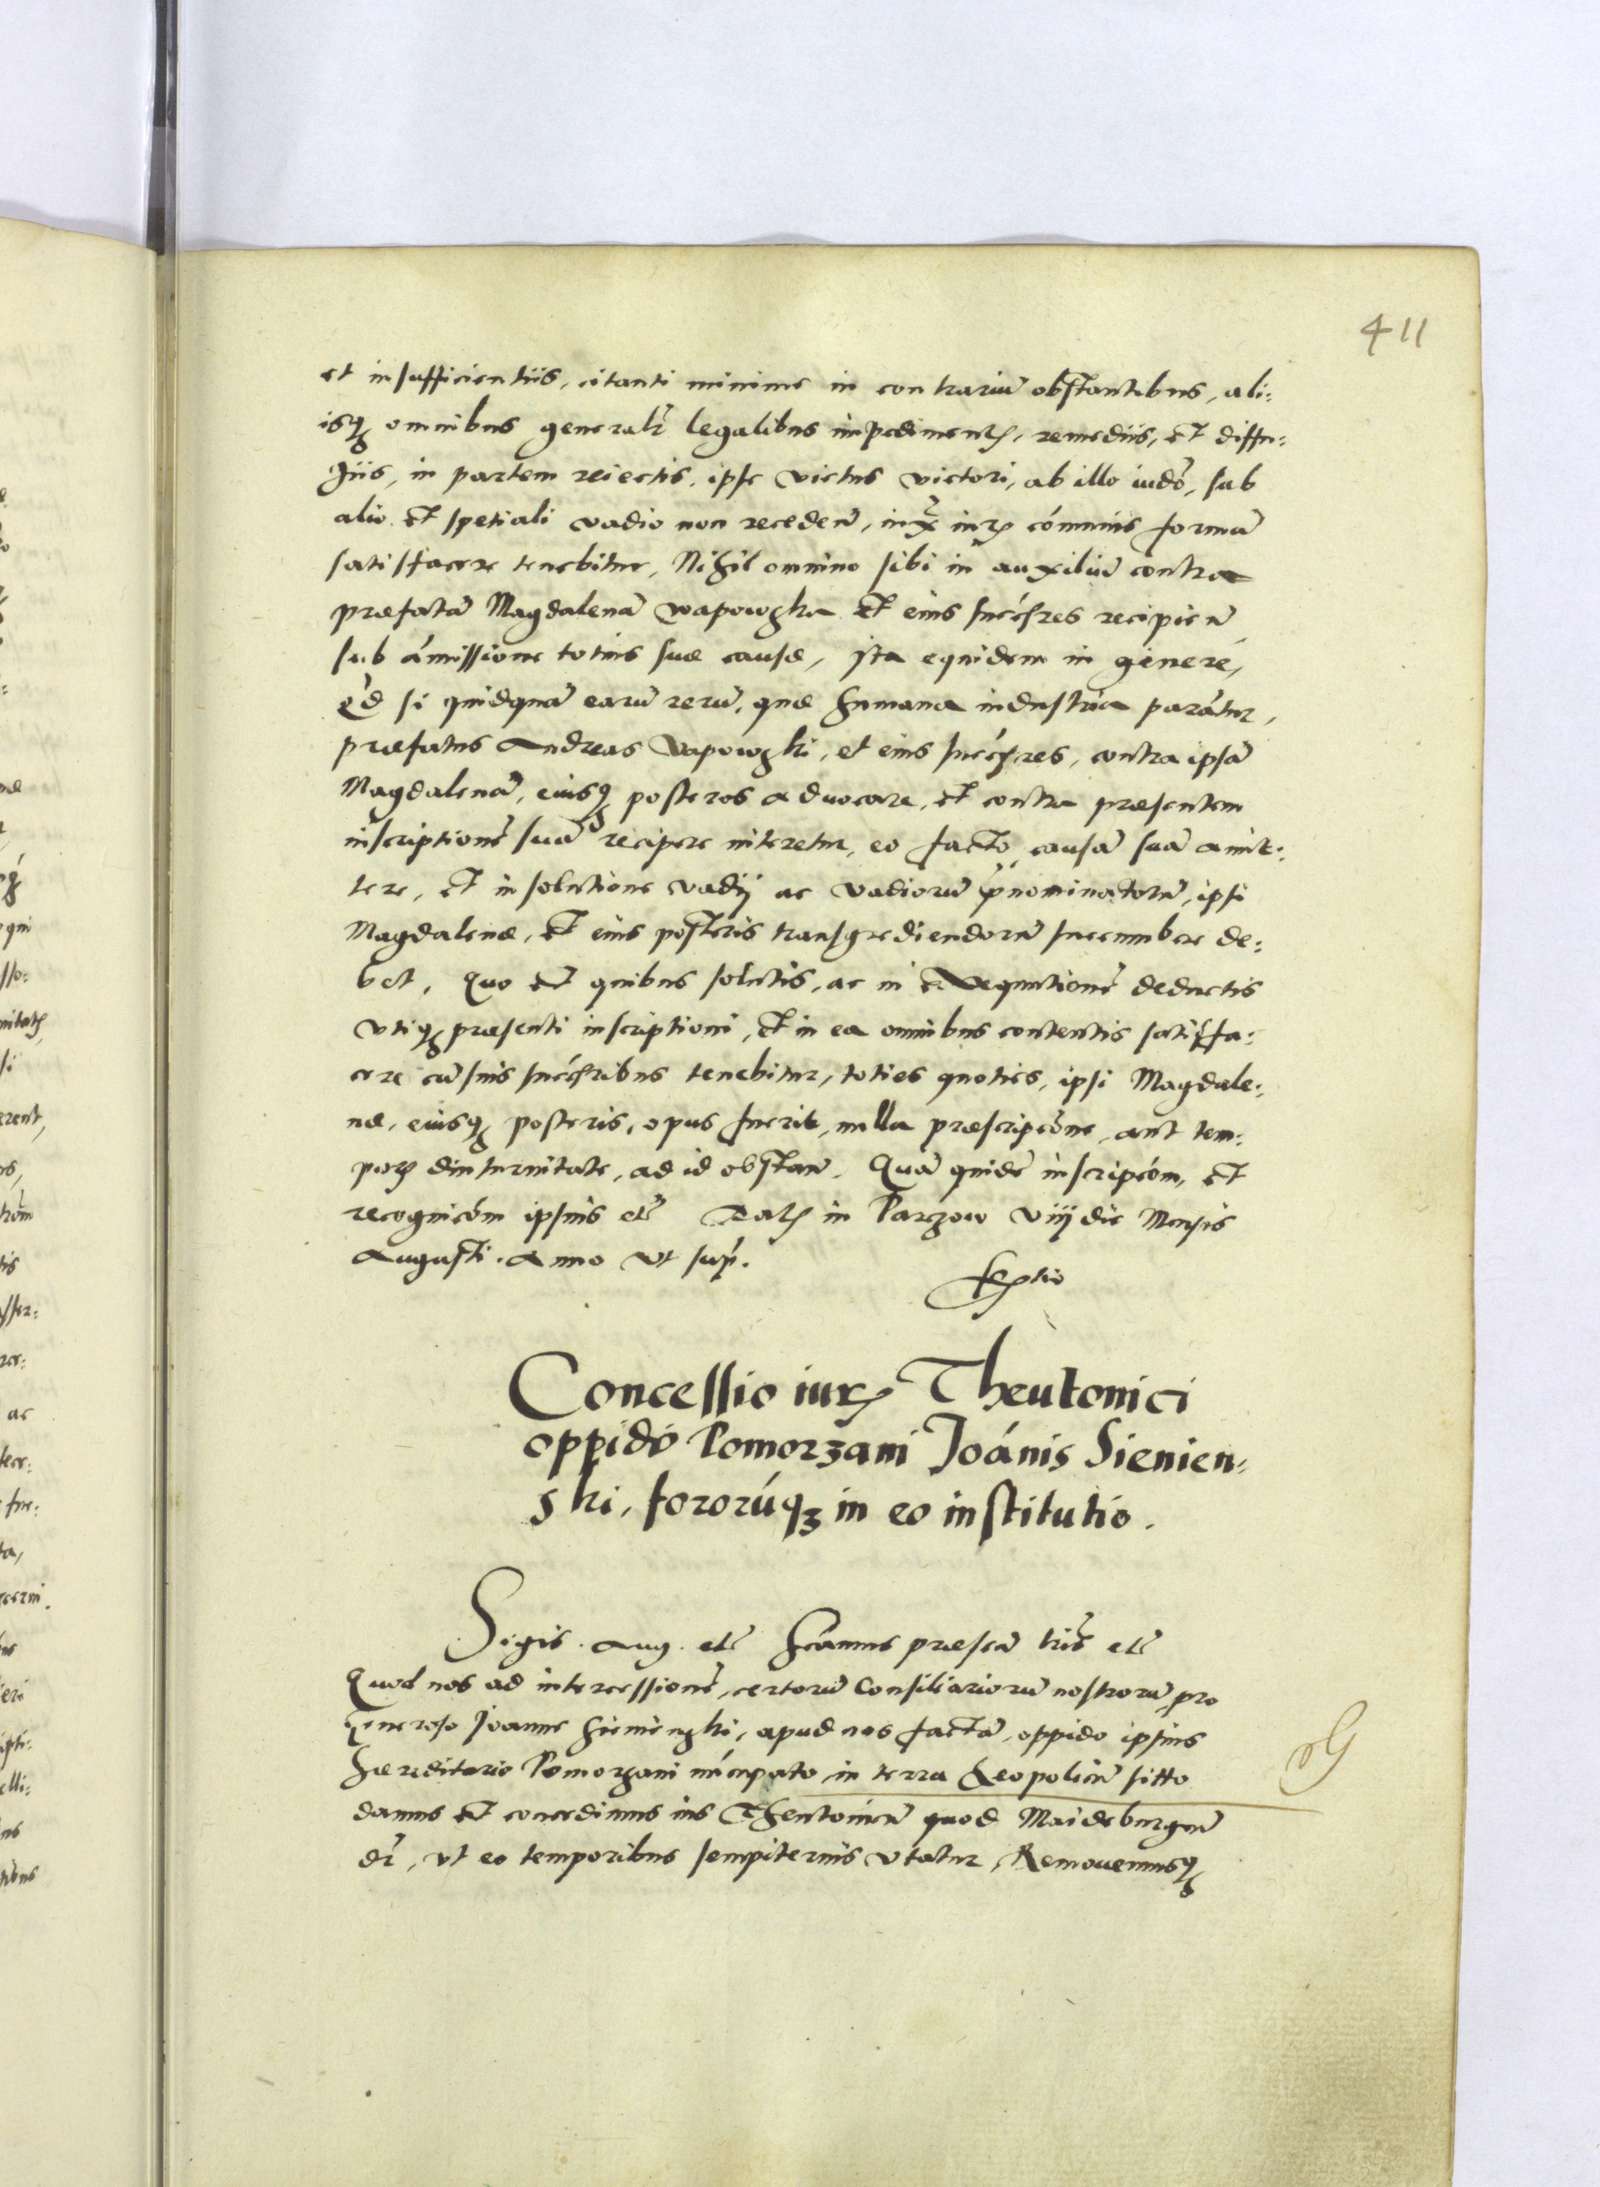 411
et insufficientiis, citanti minime in contrariũ obstantibus, ali:
isqꝫ omnibus generalr̃ legalibus impedimentꝭ, remediis, et diffu:
giis, in partem reiectis, ipse victus victori, ab illo iudõ, sub
alio et spetiali vadio non recedeñ, iuxta iurꝭ cõmunis formã
satisfacere tenebitur, Nihil omnino sibi in auxiliũ contra
præfatã Magdalenã wapowska et eius succ̃sres recipieñ
sub ámissione totius suæ causæ, Ita equidem in genere,
qd̃ si quidquã earũ rerũ, quæ humana industria parãtur,
præfatus Andreas Vapowski, et eius succ̃sres, contra ipsã
Magdalenã, eiusqꝫ posteros advocare, et contra præsentem
inscriptionẽ suã recipere niteretur, eo facto causã suã amit:
tere, et in solutione vadij ac vadiorũ p̃nominatorũ, ipsi
Magdalenæ, et eius posteris transgrediendorũ succumbere de:
bet, Quo et quibus solutis, ac in exequutionẽ deductis
vtiqꝫ præsenti inscriptioni, et in ea omnibus contentis satisfa:
cere cũ suis succ̃sribus tenebitur, toties quoties, ipsi Magdale:
næ, eiusqꝫ posteris, opus fuerit, nulla præscripc̃one, aut tem:
porꝭ diuturnitate, ad id obstan̄. Quã quidẽ inscripc̃om, et
recognic̃om ipsius etc̃ Datꝭ in Parczow viij die Mensis
Augusti. Anno vt sup̃.
Concessio iurꝭ Theutonici
oppido Pomorzani Joánis Sienien:
ski, fororúqꝫ in eo institutio.
Sigis. Aug. etc̃ Sc̃amus præseñ lr̃is etc̃
Quod nos ad intercessionẽ, certorũ Consiliariorũ nostrorũ, pro
Generoso Joanne Sieninski, apud nos factã, oppido ipsius
hæreditario Pomorzani nũcupato in terra Leopolieñ sitto
damus et concedimus ius Theutonicũ quod Maideburgeñ
dr̃, vt eo temporibus sempiternis vtatur, Removemusqꝫ